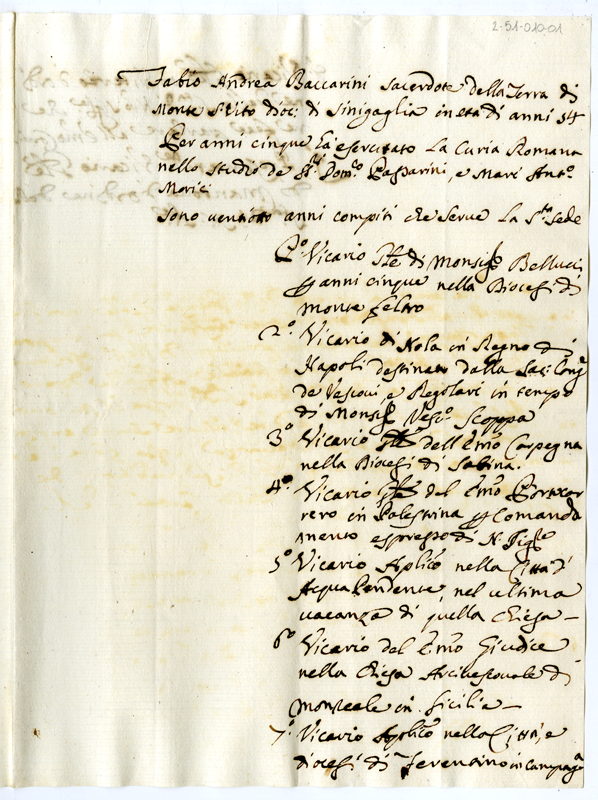 2-51-010-01
Fabio Andrea Baccarini sacerdote della Terra di
Monte S. Vito dioc: di Sinigaglia in età di anni 54
Per anni cinque hà esercitato La Curia Romana
nello studio de SS.ri Dom.co Passarini, e Marc' Ant.o
Morici
Sono ventotto anni compiti che serve La S.ta Sede
P.o Vicario Gñle di Monsig.r Bellucci
p anni cinque nella Diocesi di
Monte feltro
2.o Vicario di Nola in Regno di
Napoli destinato dalla Sac: Cong.
de Vescovi, e Regolari in tempo
di Monsig.r Vesc.o Scoppa
3.o Vicario Gñle dell'Em̃o Carpegna
nella Diocesi di Sabina.
4.o Vicario Gñle del Em̃o Portocar
rero in Palestrina p Comanda
mento espresso di N. Sig.re
5.o Vicario Aplico nella Città d'
Acqua Pendente, nel ultima
vacanza di quella Chiesa —
6.o Vicario del Em̃o Giudice
nella Chiesa Arcivescovale di
Monreale in Sicilia —
7.o Vicario Aplico nella Città, e
diocesi di Ferentino in Campag.a